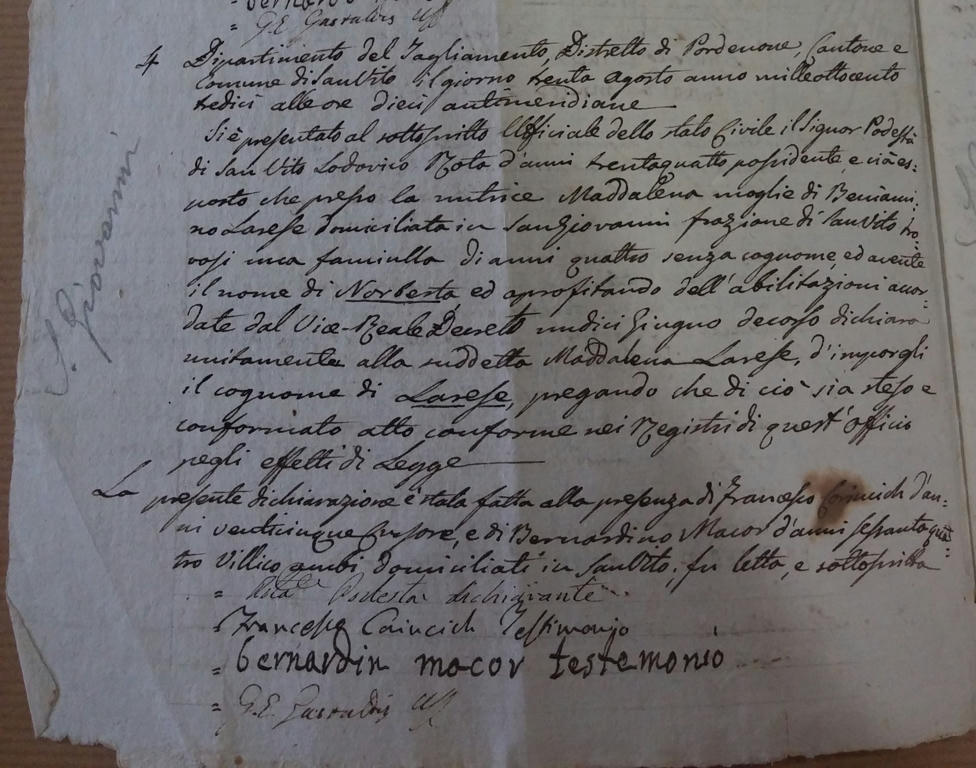 G.E. Gastaldis Uff
4 Dipartimento del Tagliamento, Distretto di Pordenone, Cantone e
Comune di San Vito il giorno trenta agosto anno milleottocento
tredici alle ore dieci antimeridiane
Si è presentato al sottoscritto Ufficiale dello stato Civile il Signor Podestà
di San Vito Lodovico Rota d'anni trentaquattro possidente, e ci à es-
posto che presso la nutrice Maddalena moglie di Beniami-
no Larese domiciliata in San Giovanni frazione di San Vito tro-
vasi una fanciulla di anni quattro senza cognome, ed avente
il nome di Norberta ed aprofitando dell'abilitazioni accor-
date dal Vice-Reale Decreto undici Giugno decorso dichiara
unitamente alla suddetta Maddalena Larese, d'imporgli
il cognome di Larese, pregando che di ciò sia steso e
conformato atto conforme nei Registri di quest'officio
pegli effetti di Legge
La presente dichiarazione è stata fatta alla presenza di Francesco d'an-
ni venticinque Cursore, e di Bernardino Macor d'anni sessantaquat-
tro Villico ambi domiciliati in San Vito; fu letta, e sottoscritta
= Rota Podestà dichiarante
= Francesco Testimonio
= bernardin macor testemonio
= G.E. Gastaldis Uff
S. Giovanni